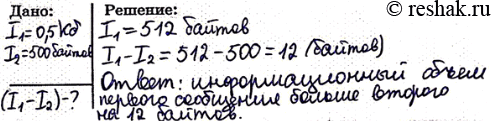 © reshak.ru
Дано:
I₁=0,5 Кб
I₂=500 байтов
(I₁-I₂)-?
Решение:
I₁=512 байтов
I₁-I₂=512-500=12 (байтов)
Ответ: информационный объем
первого сообщения больше второго
на 12 байтов.